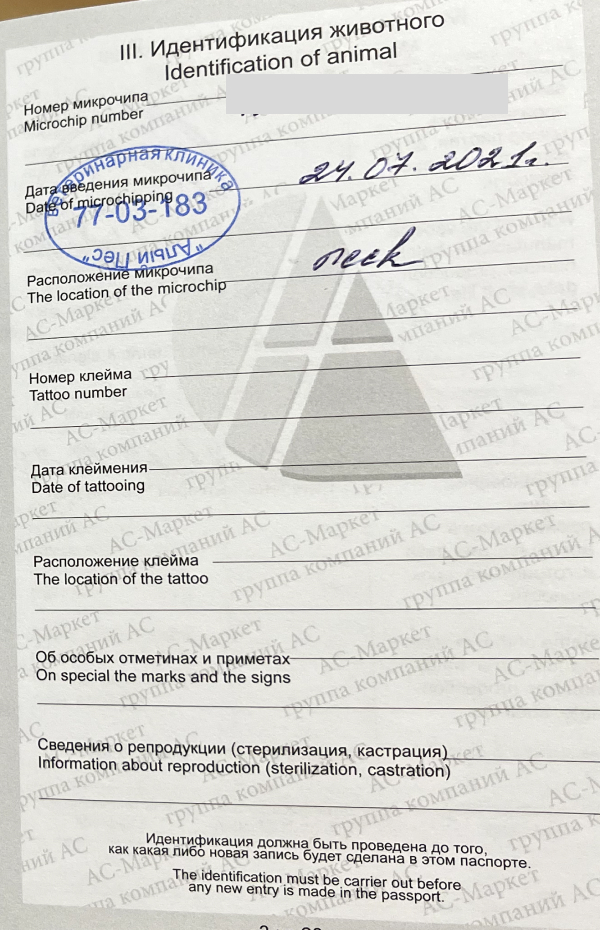 III. Идентификация животного
Identification of animal
Номер микрочипа
Microchip number
Дата введения микрочипа
Date of microchipping
24.07.2021г.
Ветеринарная клиника
77-03-183
"Алый Пёс"
Расположение микрочипа
The location of the microchip
neck
Номер клейма
Tattoo number
Дата клеймения
Date of tattooing
Расположение клейма
The location of the tattoo
Об особых отметинах и приметах
On special the marks and the signs
Сведения о репродукции (стерилизация, кастрация)
Information about reproduction (sterilization, castration)
Идентификация должна быть проведена до того,
как какая либо новая запись будет сделана в этом паспорте.
The identification must be carrier out before
any new entry is made in the passport.
группа компаний АС-Маркет